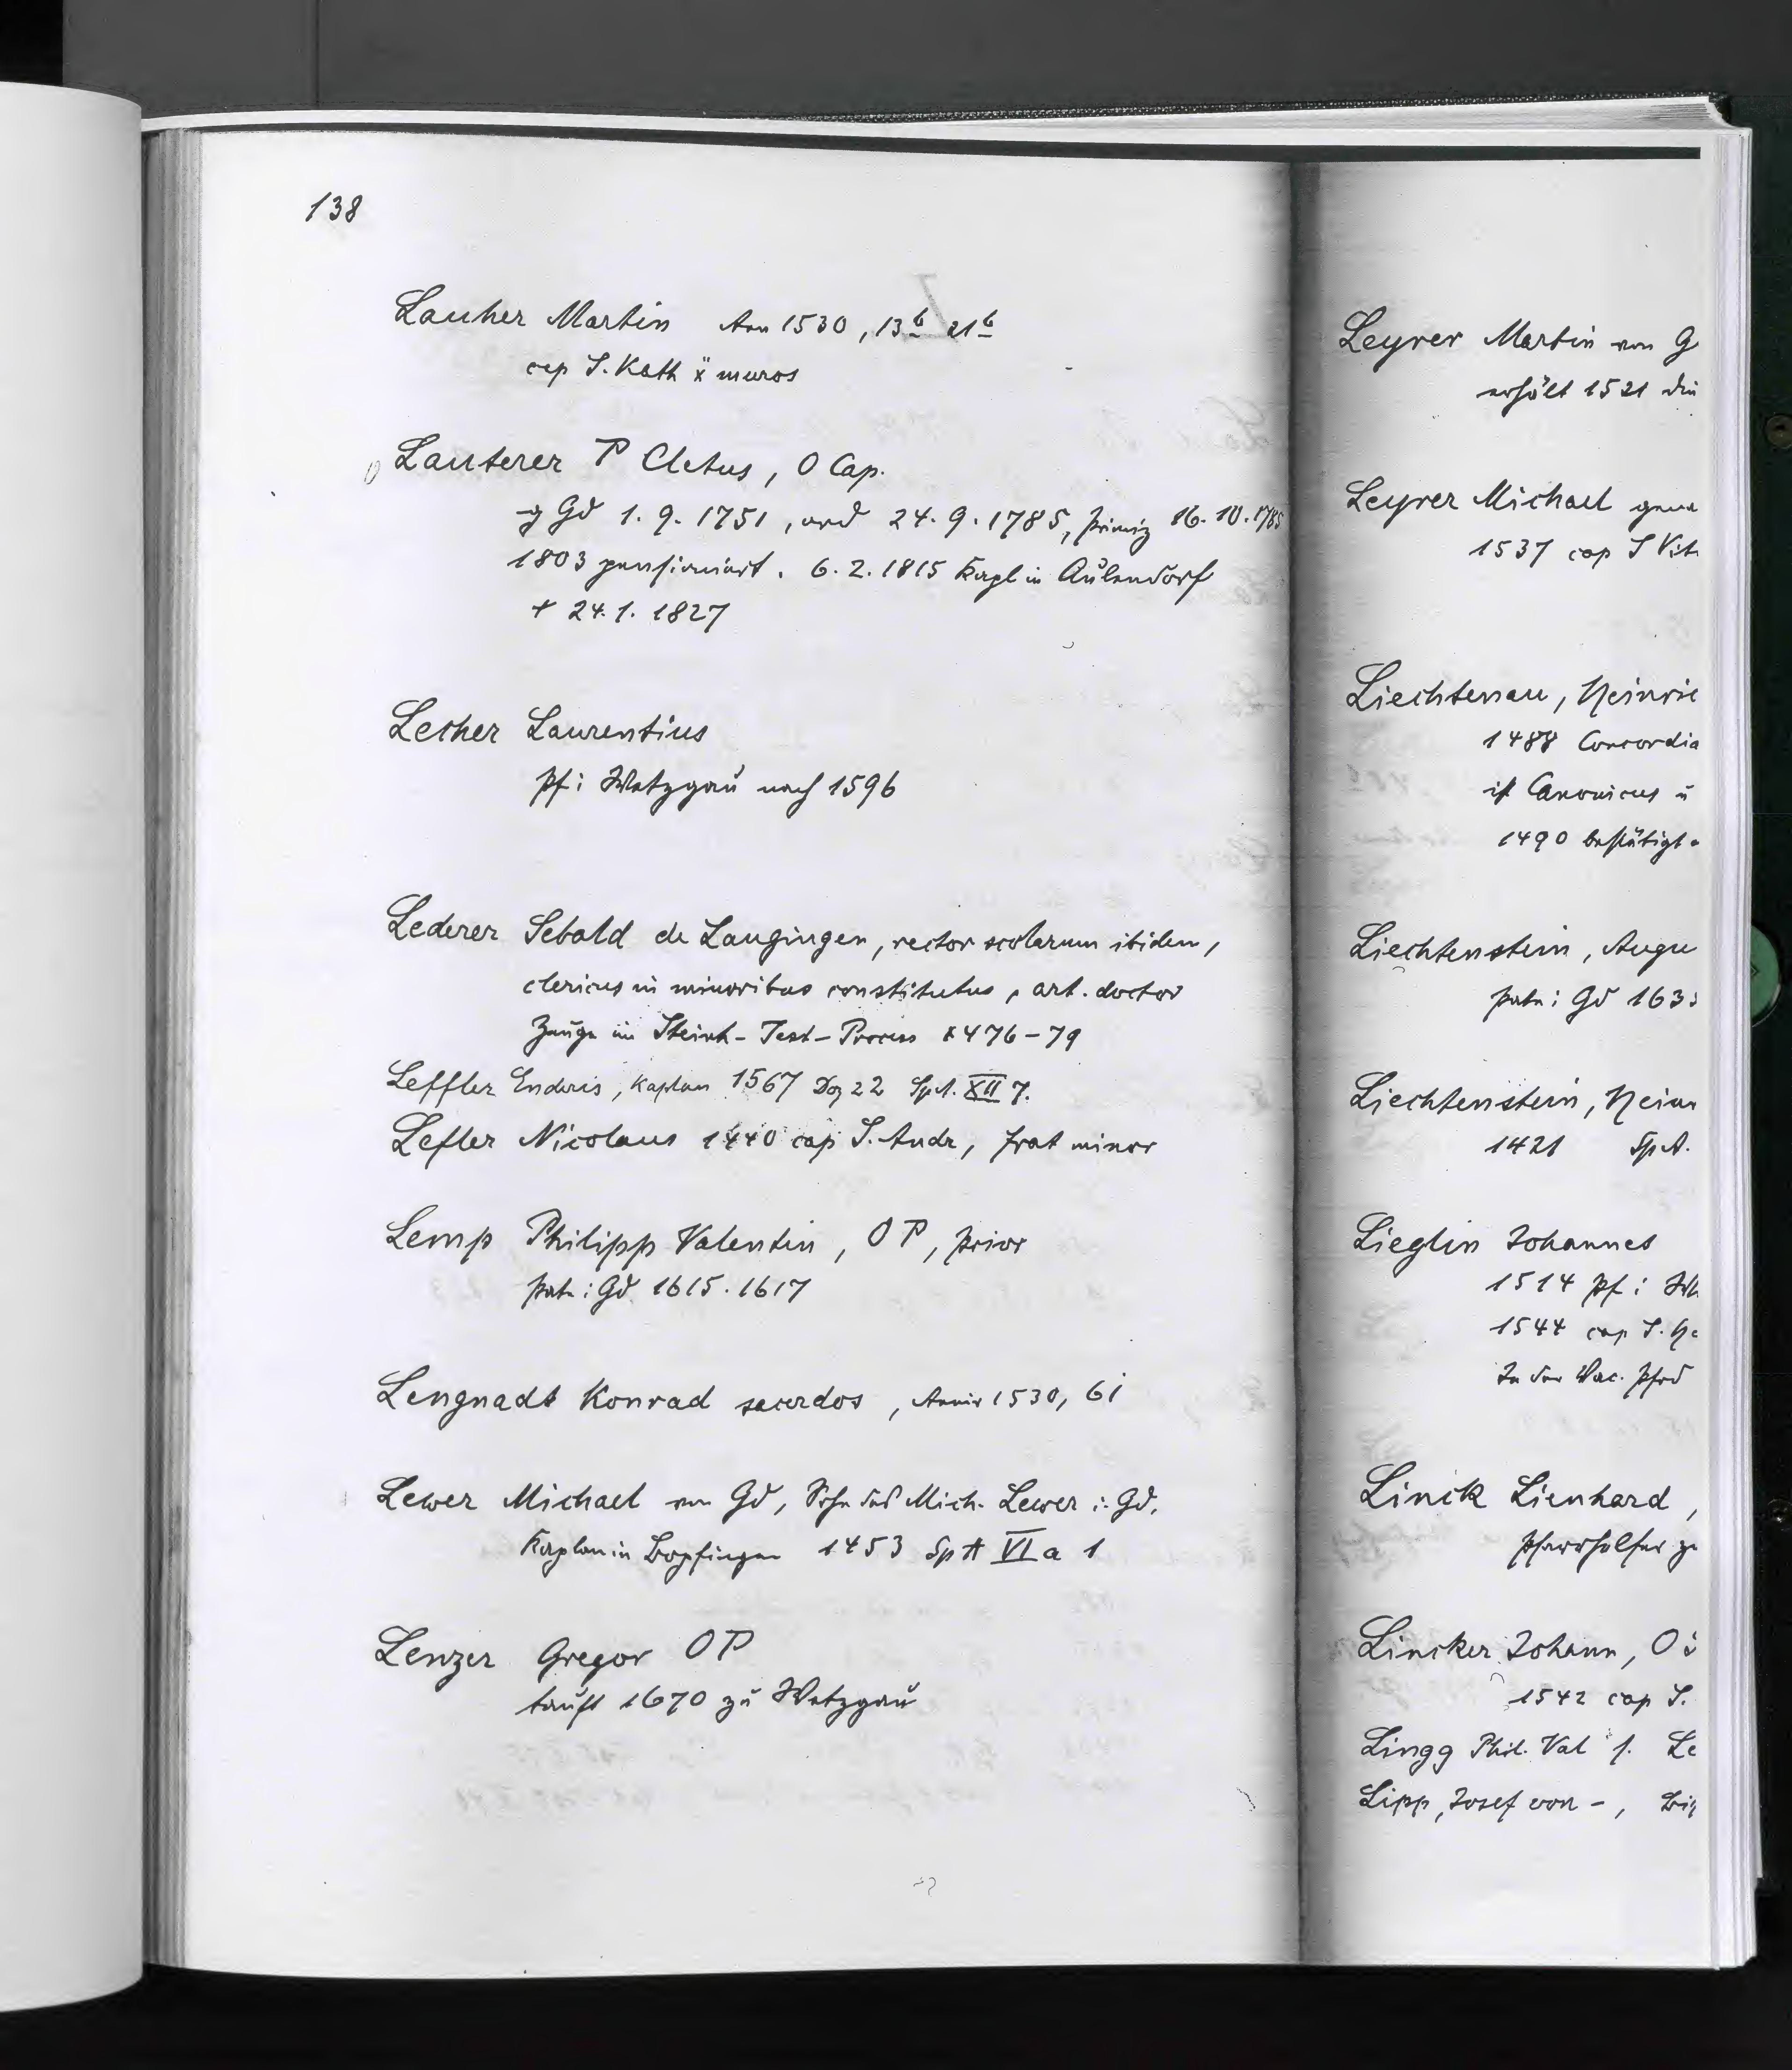 138
Lauher Martin Ann 1530, 13b 21b
cap S. Kath x muros
Lauterer P Cletus, O Cap.
g Gd 1.9.1751, ord 24.9.1785, Primiz 16.10.1785
1803 pensioniert. 6.2.1815 Kapl in Aulendorf
+ 24.1.1827
Lecher Laurentius
Pf i Wetzgau nach 1596
Lederer Sebald de Laugingen, rector scolarum ibidem,
clericus in minoribus constitutus, art. doctor
Zeuge im Steinh-Test-Process 1476-79
Leffler Enderis, Kaplan 1567 Dez 22 SpA. XII 7.
Lefler Nicolaus 1440 cap S. Andr, frat minor
Lemp Philipp Valentin, OP, Prior
Pate i Gd 1615. 1617
Lengnadt Konrad sacerdos, Anniv 1530, 6i
Lewer Michael von Gd, Sohn des Mich. Lewer i. Gd.
Kaplan in Bopfingen 1453 SpA VI a 1
Lenzer Gregor OP
tauft 1670 zu Wetzgau
Leyrer Martin von G
erhält 1521 die
Leyrer Michael gena
1537 cap S Vit
Liechtenau, Heinric
1488 Concordia
ist Canonicus u
1490 bestätigt
Liechtenstein, Augu
Pate i Gd 163
Liechtenstein, Hein
1421 SpA.
Lieglin Johannes
1514 Pf i
1544 cap S.
In der
Linck Lienhard,
Pfarrhelfer
Lincker Johann, O
1542 cap S.
Lingg Phil. Val s. Le
Lipp, Josef von -, Bi